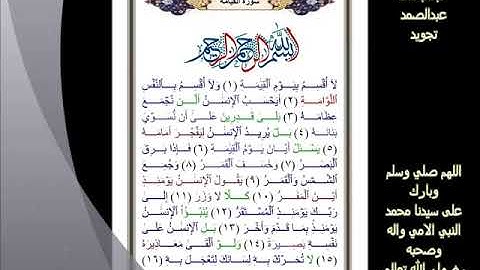 سورة القيامة
بسم الله الرحمن الرحيم
لا أقسم بيوم القيمة (١) ولا أقسم بالنفس
اللوامة (٢) أيحسب الإنسن ألن نجمع
عظامه (٣) بلى قدرين على أن نسوي
بنانه (٤) بل يريد الإنسن ليفجر أمامه
(٥) يسئل أيان يوم القيمة (٦) فإذا برق
البصر (٧) وخسف القمر (٨) وجمع
الشمس والقمر (٩) يقول الإنسن يومئذ
أين المفر (١٠) كلا لا وزر (١١) إلى
ربك يومئذ المستقر (١٢) ينبؤا الإنسن
يومئذ بما قدم وأخر (١٣) بل الإنسن على
نفسه بصيرة (١٤) ولو ألقى معاذيره
(١٥) لا تحرك به لسانك لتعجل به (١٦)
عبدالصمد
تجويد
اللهم صلي وسلم
وبارك
على سيدنا محمد
النبي الامي واله
وصحبه